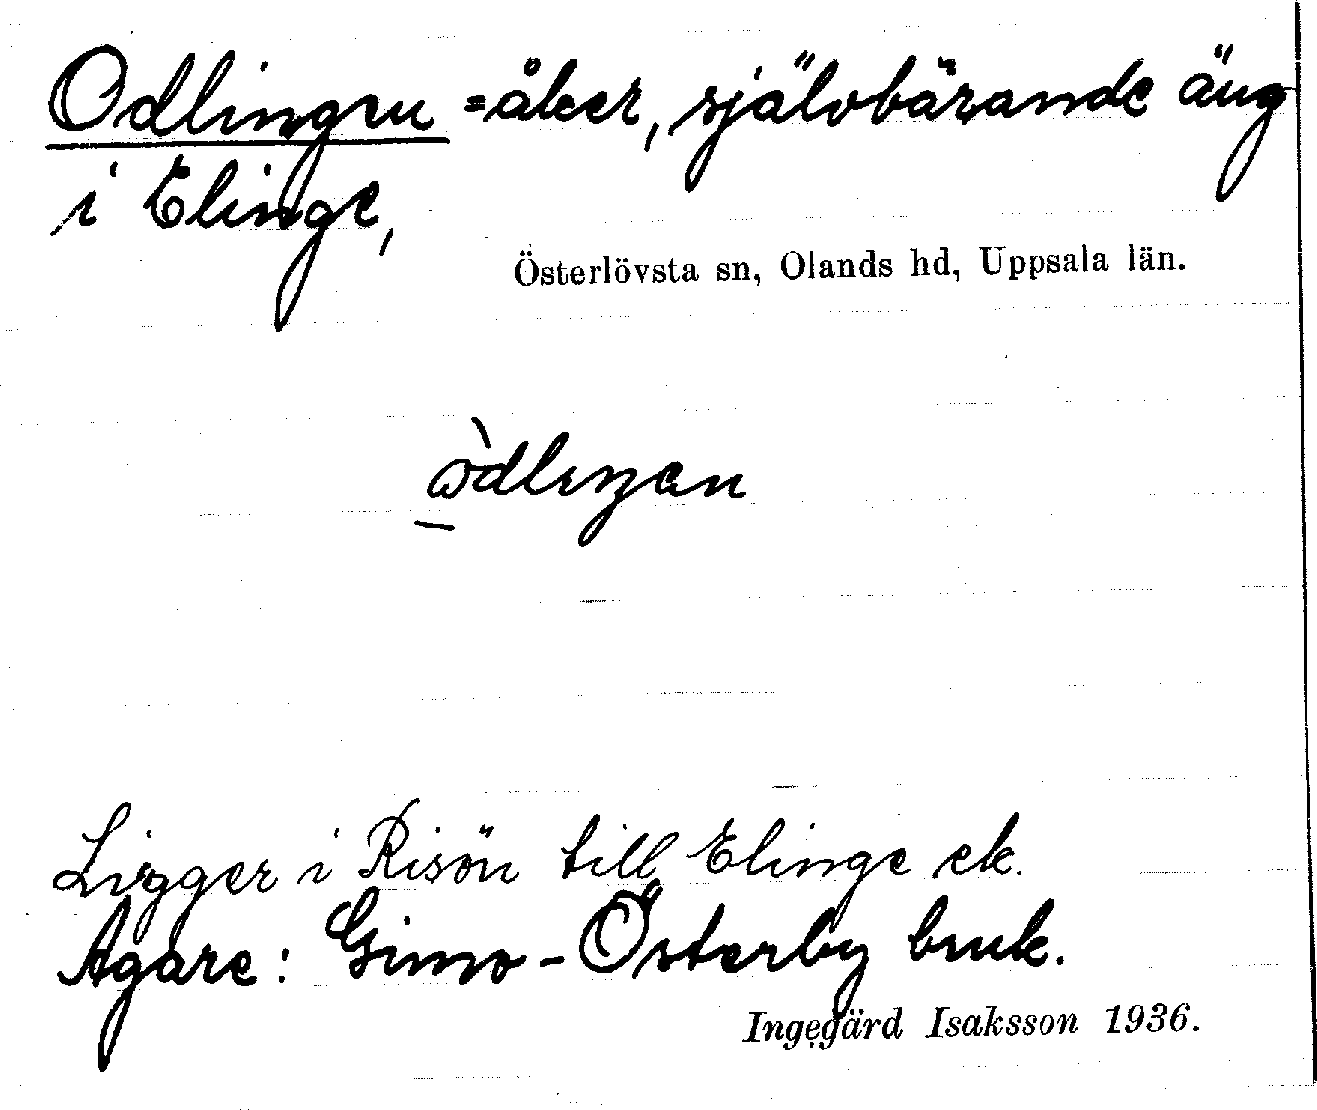 Odlingen =åker, självbärande äng
i Elinge,
Österlövsta sn, Olands hd, Uppsala län.
Ligger i Risön till Elinge ek.
Ägare: Gimo-Österby bruk.
Ingegärd Isaksson 1936.